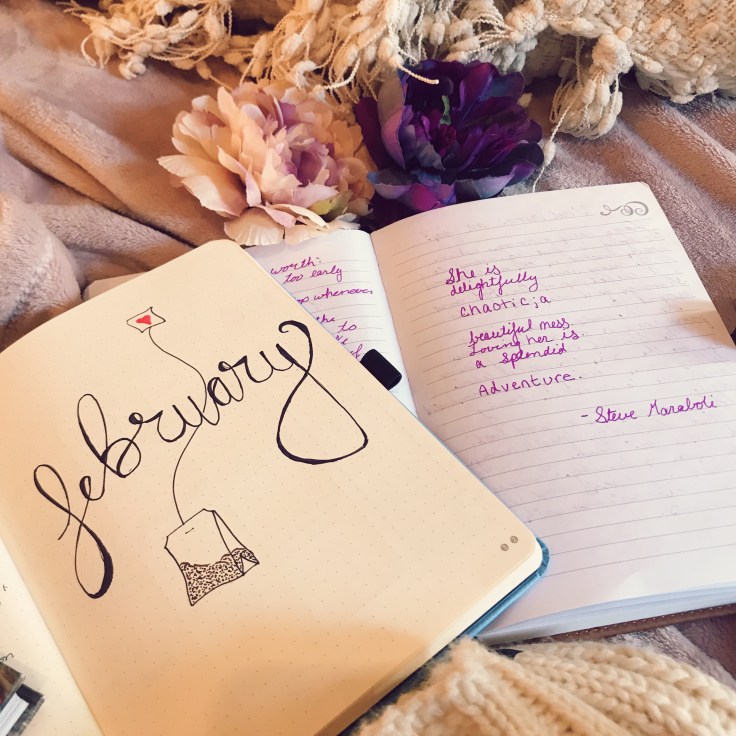 february
worth:
too early
whenever
the to
She is
delightfully
chaotic; a
beautiful mess.
Loving her is
a splendid
Adventure.
- Steve Maraboli